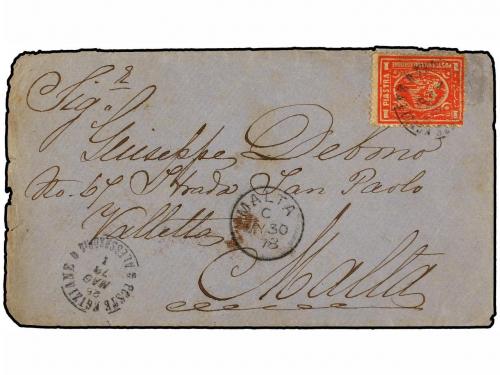 PIASTRA
Sig.a
Giuseppe Debono
No. 67 Strada San Paolo
Valletta
Malta
MALTA
C
MY30
78
POSTE EGIZIANE
ALESSANDRIA
MAG